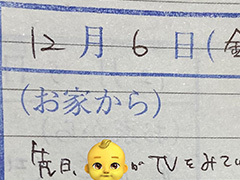 12月6日(金
(お家から)
昨日、👶がTVをみてい